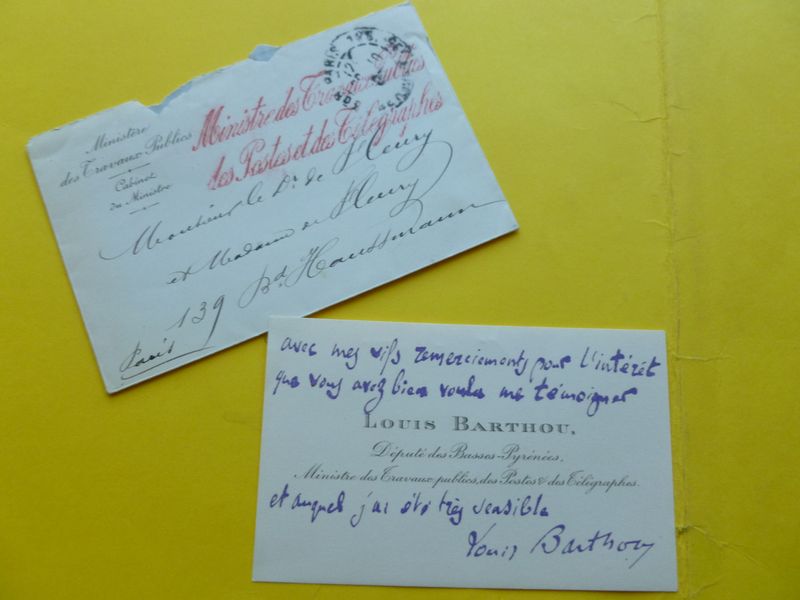 Ministère
des Travaux Publics
Cabinet
du Ministre
Ministre des Travaux publics
des Postes et des Télégraphes
PARIS
Monsieur le Dr. de Fleury
et Madame de Fleury
139 Bd. Haussmann
Paris
avec mes vifs remerciements pour l'intérêt
que vous avez bien voulu me témoigner
LOUIS BARTHOU,
Député des Basses-Pyrénées.
Ministre des Travaux publics, des Postes & des Télégraphes.
et auquel j'ai été très sensible
Louis Barthou